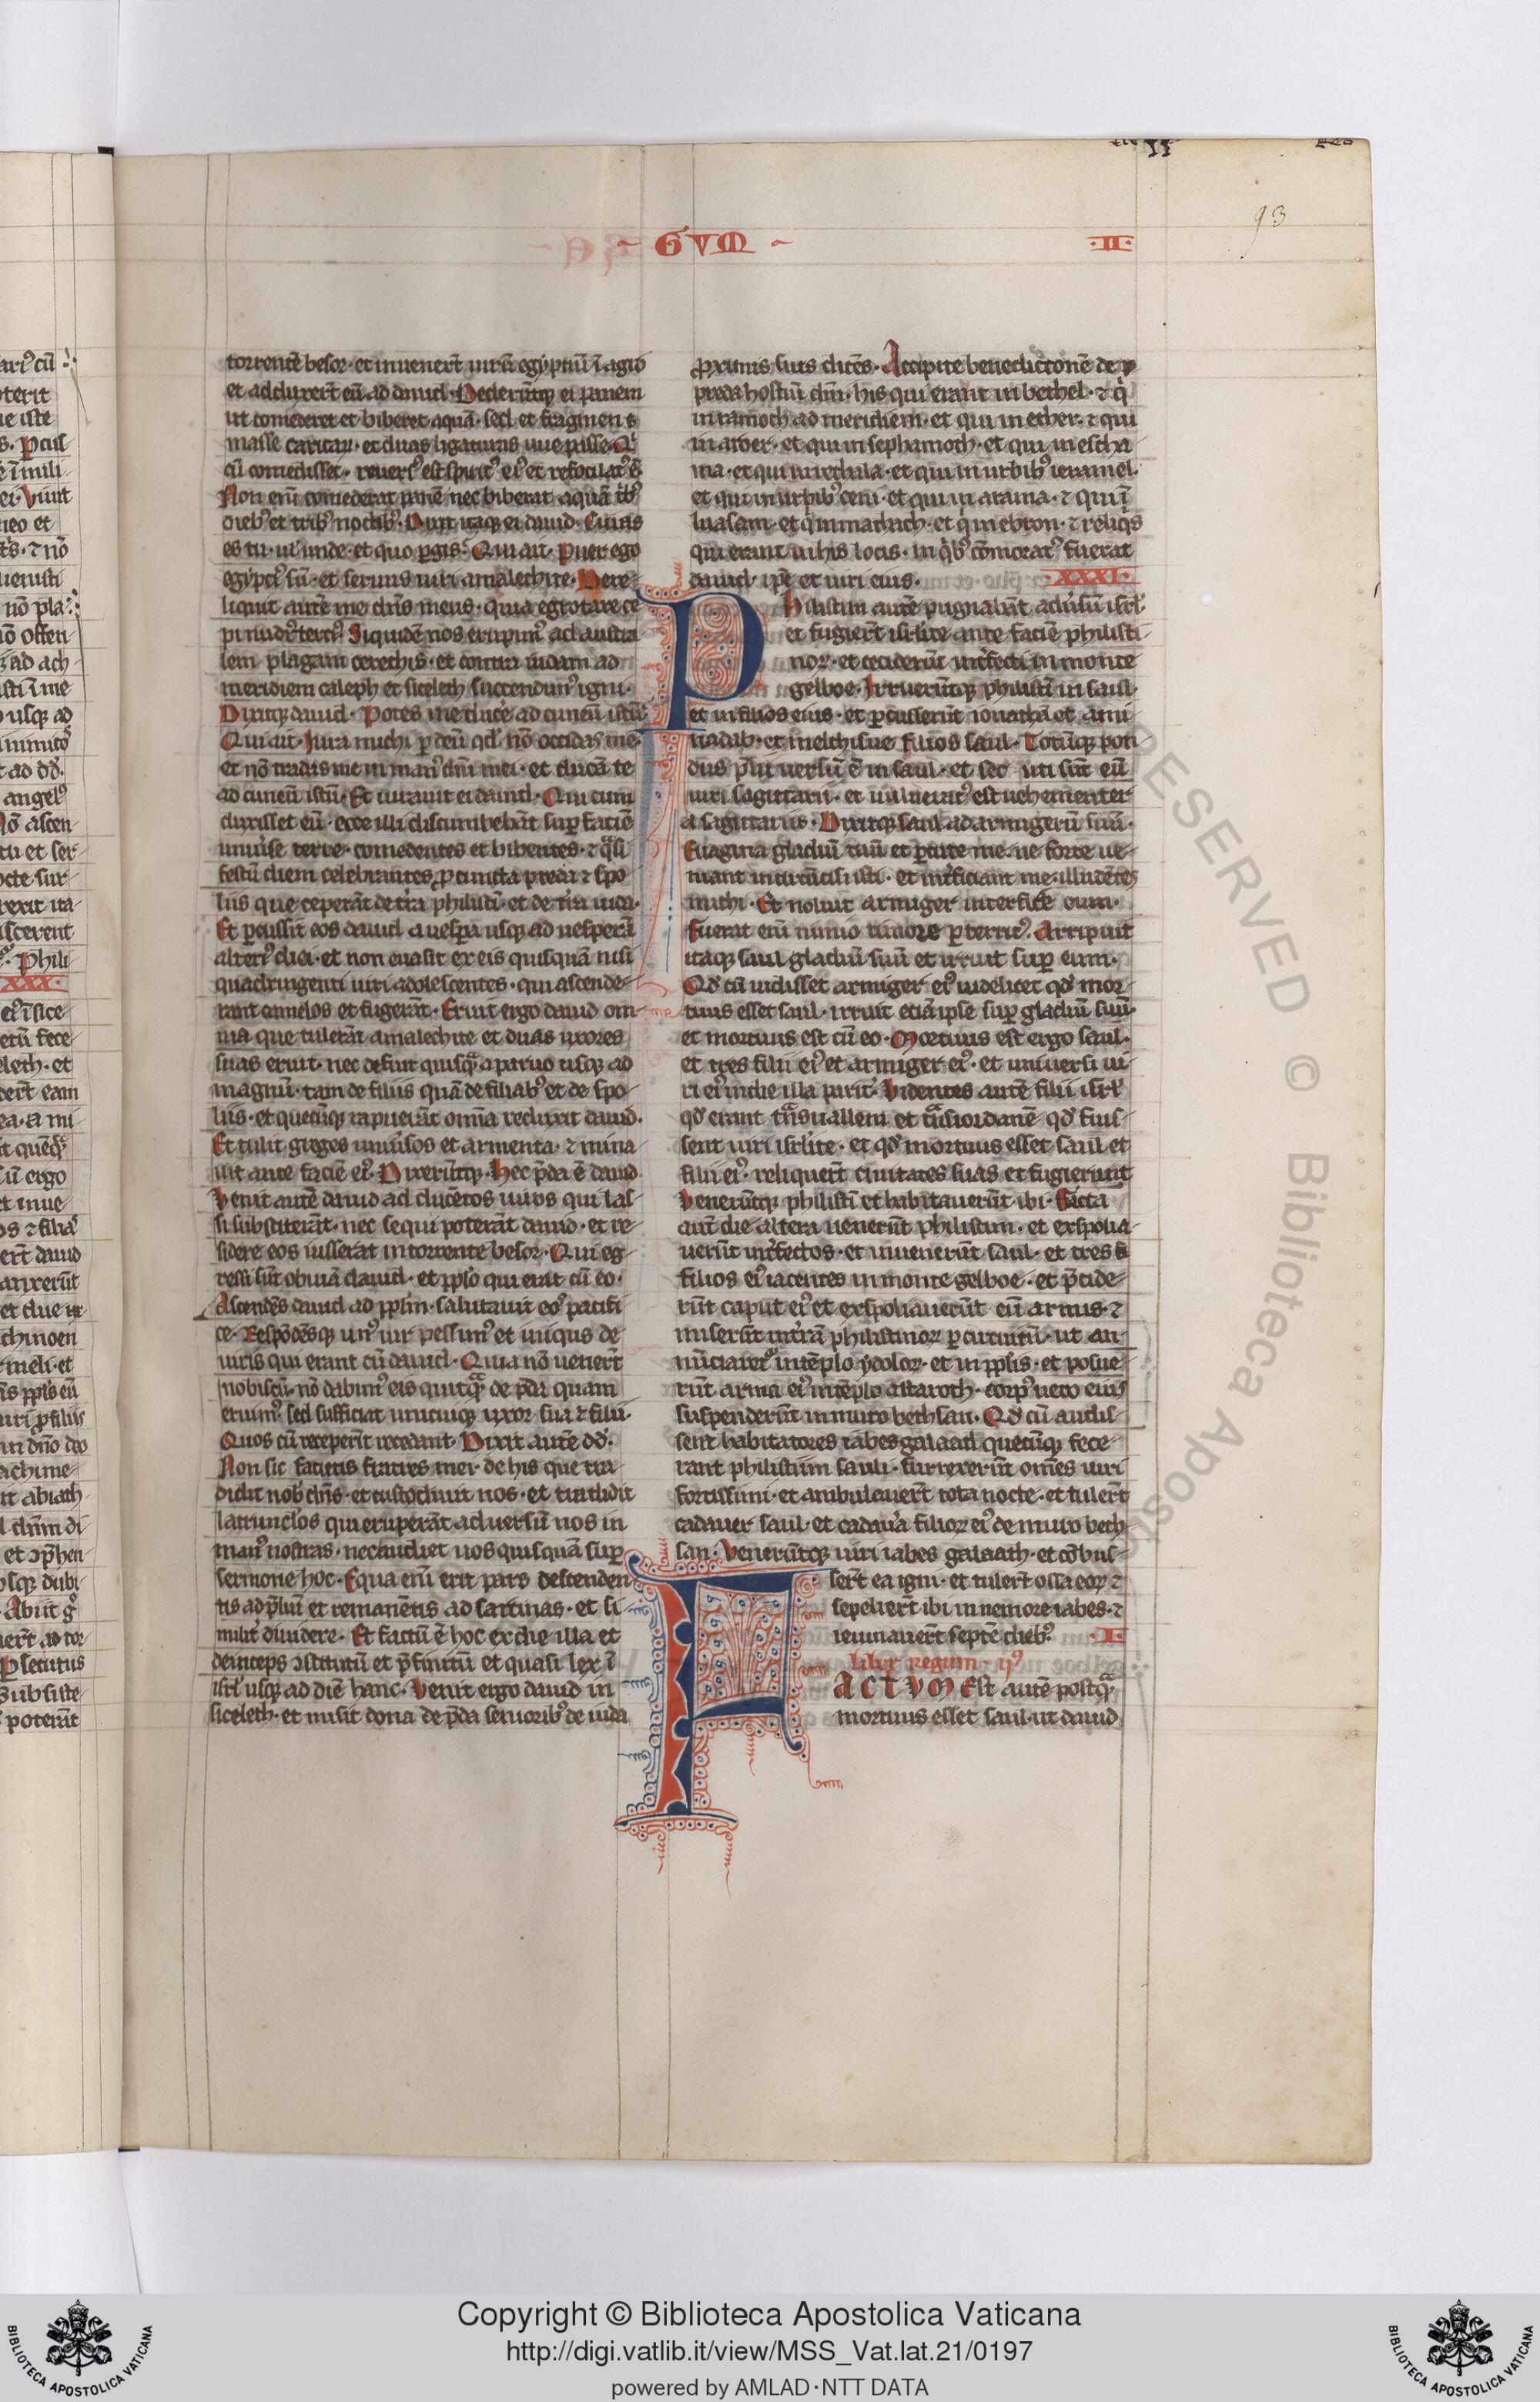 ~ GVM ~
·II·
93
torrentē besor· et inuenerūt uirū egyptiū ī agro
et adduxerūt eū ad dauid· Dederūtqꝫ ei panem
ut comederet et biberet aquā· sed et fragmen
masse caricaꝝ· et duas ligaturas uue passe· Qͥ
cū comedisset· reuersꝰ est spiritꝰ eiꝰ et refocilatꝰ ē
Non enī comederat panē nec biberat aquā tribꝰ
diebꝰ et tribꝰ noctibꝰ· Dixit itaqꝫ ei dauid· Cuius
es tu· uł unde· et quo ꝑgis· Qui ait· Puer ego
egyptꝰ sū· et seruus uiri amalechite· Dere-
liquit autē me dn̄s meus· quia egrotare ce
pi nudiꝰterciꝰ· Siquidē nos erupimꝰ ad austra-
lem plagam cerethis· et contra iudam ad
meridiem caleph et siceleth succendimꝰ igni·
Dixitqꝫ dauid· Potes me ducere ad cuneū istū
Qui ait· Iura michi ꝑ deū qd̓ nō occidas me·
et nō tradas me in manꝰ dn̄i mei· et ducā te
ad cuneū istū· Et iurauit ei dauid· Qui cum
duxisset eū· ecce illi discumbebāt suꝑ faciē
uniuꝰse terre· comedentes et bibentes· ⁊ qͣsi
festū diem celebrantes ꝓ cuncta preda ⁊ spo-
liis que ceperāt de tīra philistiī· et de tīra iuda·
Et ꝑcussit eos dauid a uespa usqꝫ ad uesperā
alteriꝰ diei· et non euasit ex eis quisquā nisi
quadringenti uiri adolescentes· qui ascende-
rant camelos et fugerāt· Eruit ergo dauid om-
nia que tulerāt amalechite et duas uxores
suas eruit· nec defuit quisqͣ a paruo usqꝫ ad
magnū· tam de filiis quā de filiabꝰ et de spo-
liis· et quecūqꝫ rapuerāt omīa reduxit dauid·
Et tulit greges uniuꝰsos et armenta· ⁊ mina-
uit ante faciē eiꝰ· Dixerūtqꝫ· Hec p̄da ē dauid
Venit autē dauid ad ducētos uiros qui las-
si substiterāt· nec sequi poterāt dauid· et re-
sidere eos iusserat in torrente besor· Qui eg-
ressi sūt obuiā dauid· et pplo qui erat cū eo·
Ascendēs dauid ad pplm· salutauit eos pacifi-
ce· Respōdēsqꝫ unꝰ uir pessimꝰ et iniqus de
uiris qui erant cū dauid· Quia nō uenerūt
nobiscū· nō dabimꝰ eis quicqͣ de p̄da quam
eruimꝰ· sed sufficiat unicuiqꝫ uxor sua ⁊ filii·
Quos cū receperīt recedant· Dixit autē dd̓·
Non sic facietis fratres mei· de his que tra-
didit nob̄ dn̄s· et custodiuit nos· et tradidit
latrunclos qui eruperāt aduersū nos in
manꝰ nostras· nec audiet uos quisquā suꝑ
sermone hoc· Equa enī erit pars descenden-
tis ad p̄liū et remanētis ad sarcinas· et si-
milit̓ diuidere· Et factū ē hoc ex die illa et
deinceps ↄstitutū et p̄finitū et quasi lex ī
isrl̓ usqꝫ ad diē hanc· Venit ergo dauid in
siceleth· et misit dona de p̄da senioribꝰ de iuda
ꝓximis suis dicēs· Accipite benedictionē de
preda hostiū dn̄i· his qui erant in bethel· ⁊ qͥ
in ramoth ad meridiem· et qui in ether· ⁊ qui
in aroer· et qui in sephamoth· et qui in estha-
ma· et qui in rethala· et qui in urbibꝰ ieramel·
et qui in urbibꝰ ceni· et qui in arama· ⁊ qui ī
luasam· et qͥ in mathach· et qͥ in ebron· ⁊ reliqͥs
qui erant in his locis· in qͥbꝰ cōmoratꝰ fuerat
dauid· ipē et uiri eius· XXXI·
Philistiim autē pugnabāt aduꝰsū isrl̓·
et fugerūt isrl̓ite ante faciē philisti-
noꝝ· et ceciderūt int̓fecti in monte
gelboe· Irruerūtqꝫ philistī in saul·
et in filios eius· et ꝑcusserūt ionathā et ami-
nadab· et melchisue filios saul· Totūqꝫ pon-
dus p̄lii uersū ē in saul· et sec uti sūt eū
uiri sagittarii· et uulneratꝰ est uehementer
a sagittariis· Dixitqꝫ saul ad armigerū suū·
Euagina gladiū tuū et ꝑcute me· ne forte ue-
niant incircūcisi isti· et int̓ficiant me· illudētes
michi· Et noluit armiger interfic̓e eum·
Fuerat enī nimio timore ꝑterritꝰ· Arripuit
itaqꝫ saul gladiū suū et irruit suꝑ eum·
Qd̓ cū uidisset armiger eiꝰ uidelicet qd̓ mor-
tuus esset saul· irruit etiā ipse suꝑ gladiū suū·
et mortuus est cū eo· Mortuus est ergo saul·
et tres filii eiꝰ et armiger eiꝰ· et uniuersi ui-
ri eiꝰ in die illa parit̓· Videntes autē filii isrl̓
qd̓ erant trͣs uallem et trͣs iordanē qd̓ fugis-
sent uiri isrl̓ite· et qd̓ mortuus esset saul et
filii eiꝰ· reliquerūt ciuitates suas et fugierunt
Venerūtqꝫ philistī et habitauerūt ibi· Facta
aut̄ die altera uenerūt philistiim· et exspolia-
uerūt int̓fectos· et inuenerūt saul· et tres
filios eiꝰ iacentes in monte gelboe· et p̄cide-
rūt caput eiꝰ et exspoliauerūt eū armis· ⁊
miserūt in t̓rā philistinoꝝ ꝑ circuitū· ut an-
nūciaretᷣ in tēplo ydoloꝝ· et in pplis· et posue-
rūt arma eiꝰ in tēplo astaroth· corpꝰ uero eius
suspenderūt in muro bethsan· Qd̓ cū audis-
sent habitatores iabes galaad quecūqꝫ fece-
rant philistiim sauli· surrexerūt omēs uiri
fortissimi· et ambulauerūt tota nocte· et tulerūt
cadauer saul· et cadauꝰa filioꝝ eiꝰ de muro beth-
san· Venerūtqꝫ uiri iabes galaath· et cōbus-
serūt ea igni· et tulerūt ossa eoꝝ ⁊
sepelierūt ibi in nemore iabes· ⁊
ieiunauerūt septē diebꝰ· ·I·
liber regum· ijꝰ
FACTVM Est autē postqͣ
mortuus esset saul· ut dauid
RESERVED © Biblioteca Aposto
Copyright © Biblioteca Apostolica Vaticana
http://digi.vatlib.it/view/MSS_Vat.lat.21/0197
powered by AMLAD·NTT DATA
BIBLIOTECA APOSTOLICA VATICANA
BIBLIOTECA APOSTOLICA VATICANA